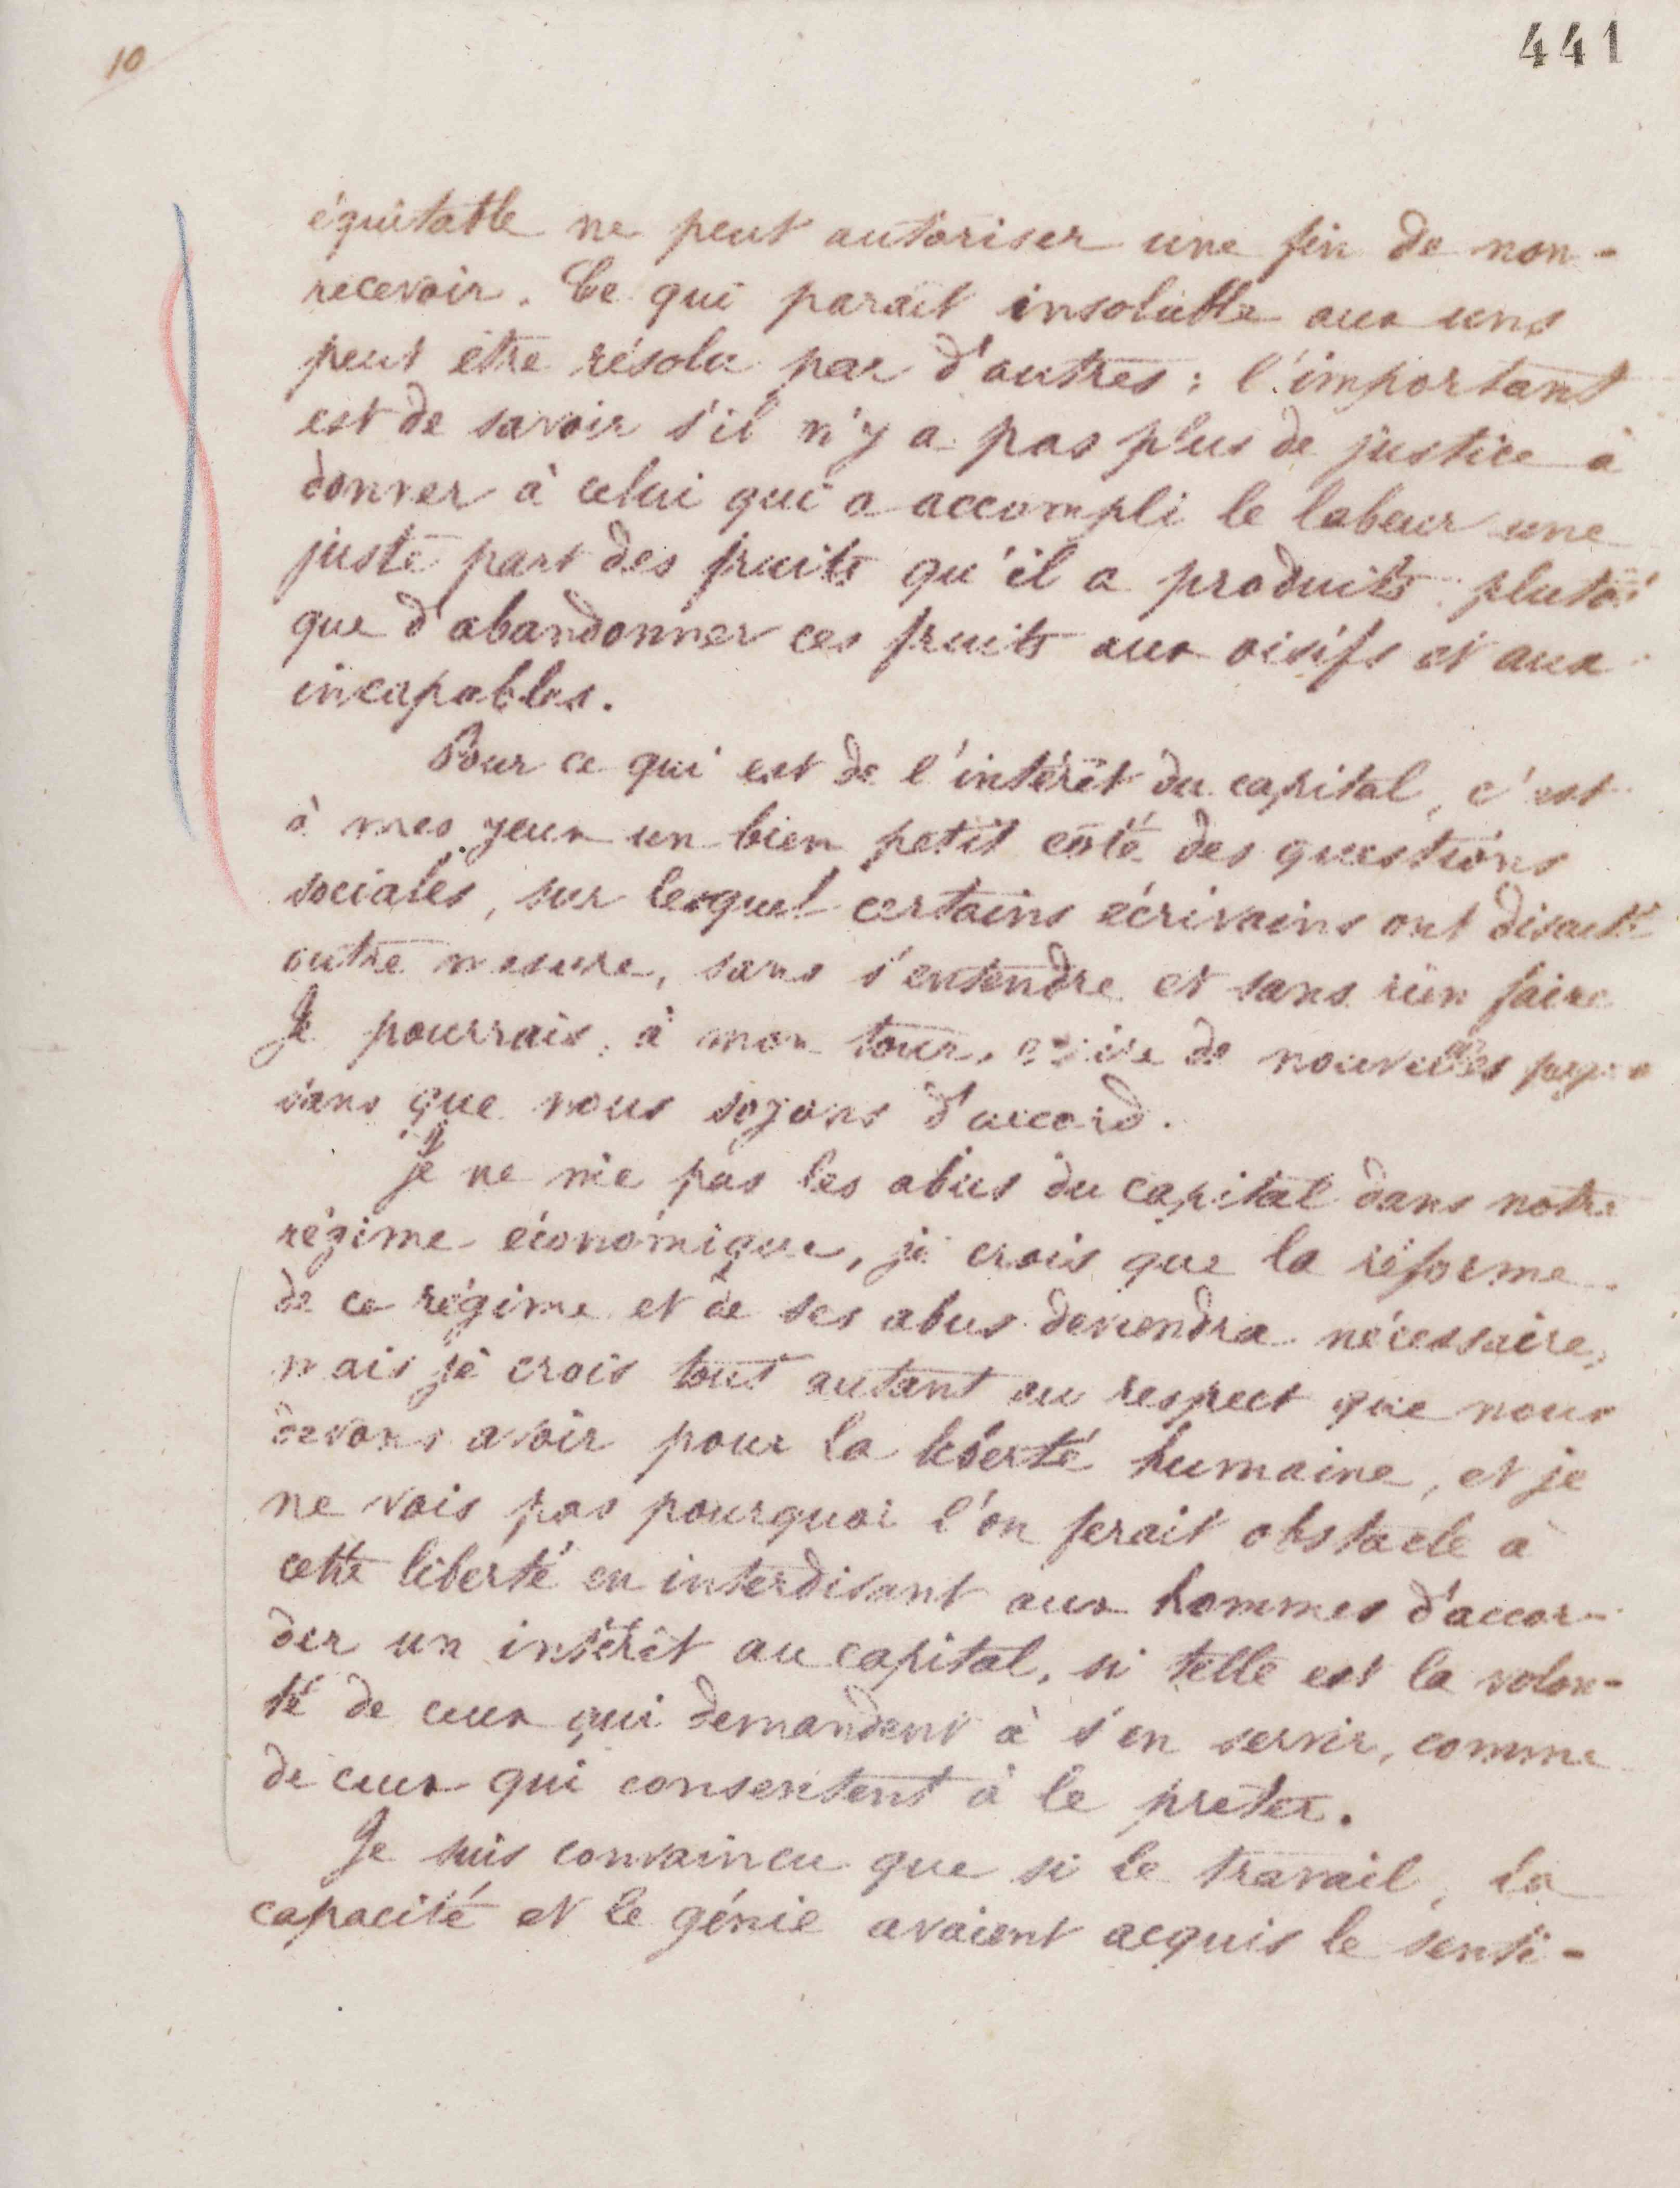 10
441
équitable ne peut autoriser une fin de non-
recevoir. Ce qui parait insoluble aux uns
peut être résolu par d'autres ; l'important
est de savoir s'il n'y a pas plus de justice à
donner à celui qui a accompli le labeur une
juste part des fruits qu'il a produits plutôt
que d'abandonner ces fruits aux oisifs et aux
incapables.
Pour ce qui est de l'intérêt du capital, c'est
à mes yeux un bien petit côté des questions
sociales, sur lequel certains écrivains ont discuté
outre mesure, sans s'entendre et sans rien faire
Je pourrais, à mon tour, écrire de nouvelles pages
sans que nous soyons d'accord.
Je ne nie pas les abus du capital dans notre
régime économique, je crois que la réforme
de ce régime et de ses abus deviendra nécessaire,
mais je crois tout autant au respect que nous
devons avoir pour la liberté humaine, et je
ne vois pas pourquoi l'on ferait obstacle à
cette liberté en interdisant aux hommes d'accor-
der un intérêt au capital, si telle est la volon-
té de ceux qui demandent à s'en servir, comme
de ceux qui consentent à le prêter.
Je suis convaincu que si le travail, la
capacité et le génie avaient acquis le senti-